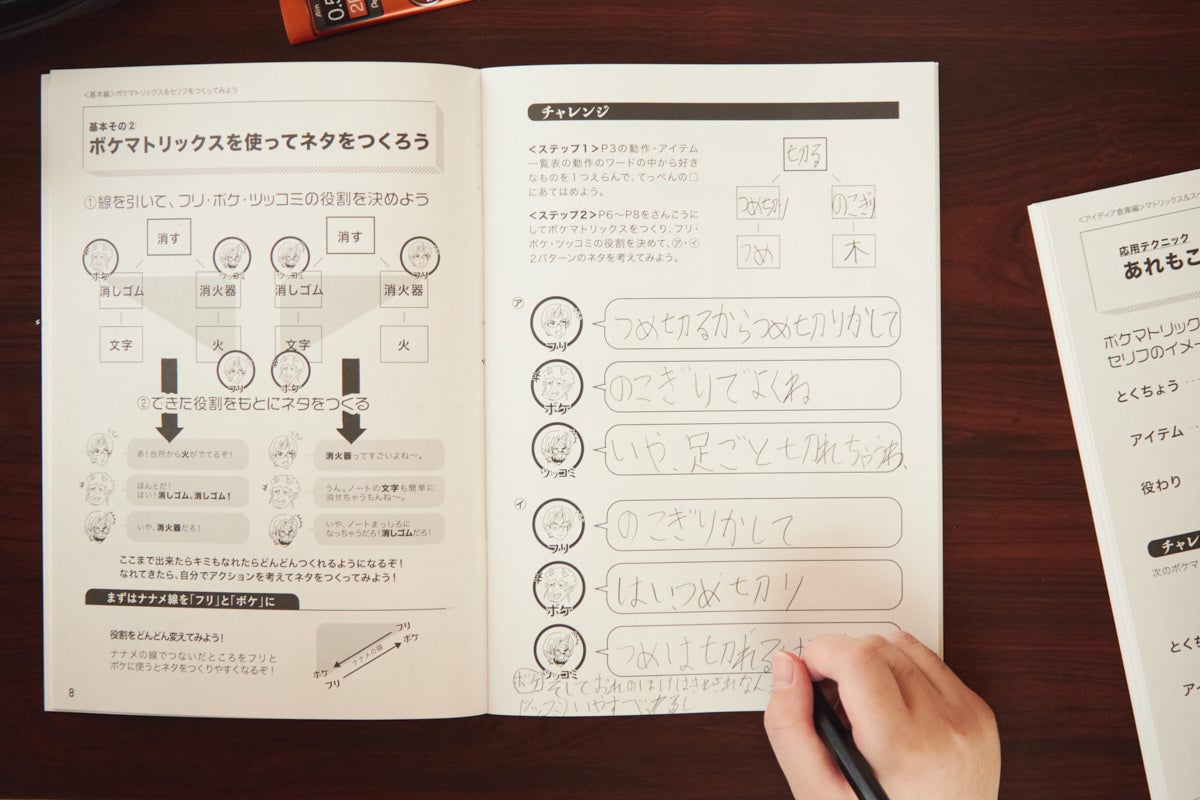 0.5
<基本編>ボケマトリックス&セリフをつくってみよう
基本その②
ボケマトリックスを使ってネタをつくろう
①線を引いて、フリ・ボケ・ツッコミの役割を決めよう
消す
ボケ
ツッコミ
消しゴム
消火器
文字
火
フリ
消す
ツッコミ
フリ
消しゴム
消火器
文字
火
ボケ
②できた役割をもとにネタをつくる
あ!台所から火がでてるぞ!
ほんとだ!
はい!消しゴム、消しゴム!
いや、消火器だろ!
消火器ってすごいよね〜。
うん。ノートの文字も簡単に
消せちゃうもんね〜。
いや、ノートまっしろに
なっちゃうだろ!消しゴムだろ!
ここまで出来たらキミもなれたらどんどんつくれるようになるぞ!
なれてきたら、自分でアクションを考えてネタをつくってみよう!
まずはナナメ線を「フリ」と「ボケ」に
役割をどんどん変えてみよう!
ナナメの線でつないだところをフリと
ボケに使うとネタをつくりやすくなるぞ!
フリ
ボケ
ナナメの線
ボケ
フリ
8
チャレンジ
<ステップ1>P3の動作・アイテム
一覧表の動作のワードの中から好き
なものを1つえらんで、てっぺんの□
にあてはめよう。
<ステップ2>P6〜P8をさんこうに
してボケマトリックスをつくり、フリ・
ボケ・ツッコミの役割を決めて、㋐・㋑
2パターンのネタを考えてみよう。
切る
つめ切り
のこぎり
つめ
木
㋐
フリ
つめ切るからつめ切りかして
ボケ
のこぎりでよくね
ツッコミ
いや、足ごと切れちゃうわ、
㋑
フリ
のこぎりかして
ボケ
はい、つめ切り
ツッコミ
つめは切れる
ボケ そしておれの
<アイディア金庫編>マトリックス&ス
応用テクニック
あれもこ
ボケマトリック
セリフのイメー
とくちょう
アイテム
役わり
チャレ
次のボケマ
とくち
アイ